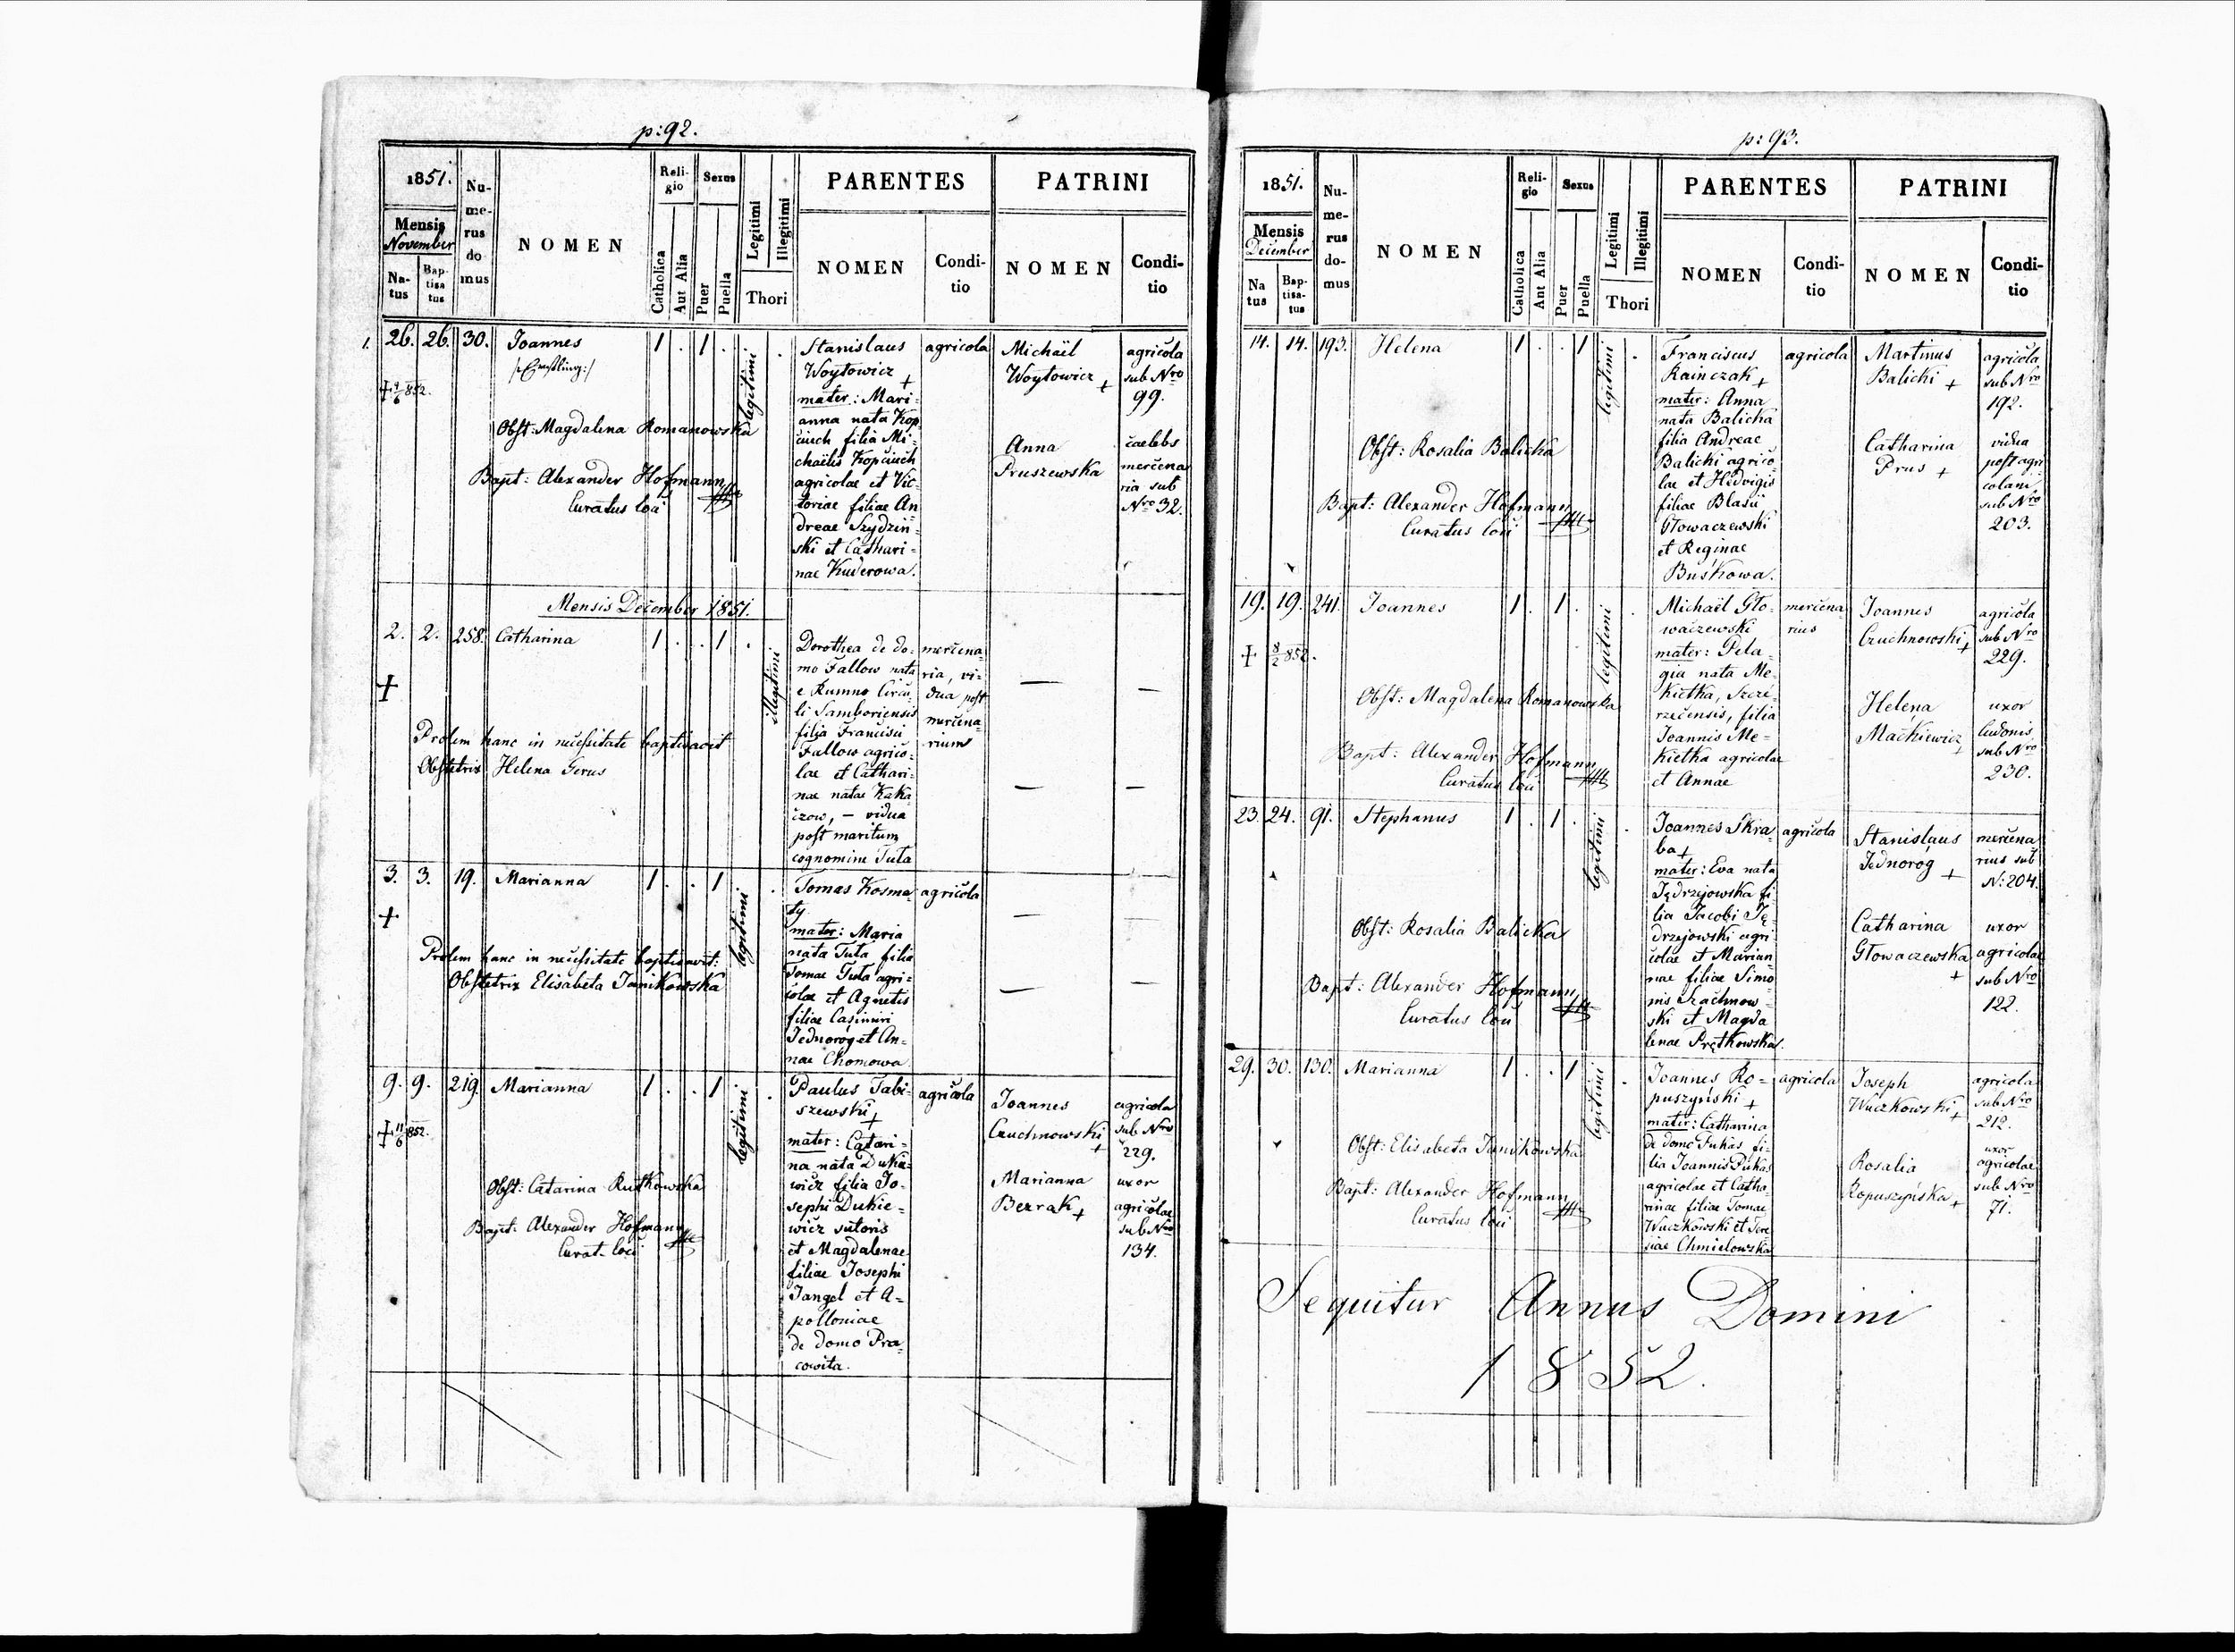 p:92.
1851.
Mensis
November
Na-
tus
Bap-
tisa
tus
Nu-
me-
rus
do
mus
NOMEN
Reli-
gio
Catholica
Aut Alia
Sexus
Puer
Puella
Legitimi
Illegitimi
Thori
PARENTES
NOMEN
Condi-
tio
PATRINI
NOMEN
Condi-
tio
1. 26. 26. 30. Joannes 1 . 1 . legitimi .
852.
Obst: Magdalena Romanowska
Bapt: Alexander Hofmann
Curatus loci
Stanislaus
Woytowicz +
mater: Mari-
anna nata Kop
ciuch filia Mi-
chaëlis Kopciuch
agricolae et Vic-
toriae filiae An
dreae Szydziń-
ski et Cathari-
nae Kuderowa.
agricola
Michaël
Woytowicz +
agricola
sub Nro
99.
Anna
Pruszewska
caelebs
mercena
ria sub
Nro 32.
Mensis December 1851.
2. 2. 258. Catharina 1 . . 1 . illegitimi
+
Prolem hanc in necessitate baptisavit
Obstetrix Helena Gerus
Dorothea de do-
mo Fallow nata
e Rumno Circu
li Samboriensis
filia Francisci
Fallow agrico-
lae et Cathari-
nae natae Kaka
czow, – vidua
post maritum
cognomine Tuta
mercena-
ria, vi-
dua post
mercena-
rium
— —
— —
3. 3. 19. Marianna 1 . . 1 legitimi .
+
Prolem hanc in necessitate baptisavit:
Obstetrix Elisabeta Janikowska
Tomas Kosma-
ty
mater: Maria
nata Tuta filia
Tomae Tuta agri-
colae et Agnetis
filiae Casimiri
Jednoróg et An-
nae Chomowa
agricola
— —
— —
9. 9. 219. Marianna 1 . . 1 legitimi .
+ 11/6 852.
Obst: Catarina Rutkowska
Bapt: Alexander Hofmann
Curat. loci
Paulus Tabi-
szewski +
mater: Catari-
na nata Dukie-
wicz filia Jo-
sephi Dukie-
wicz sutoris
et Magdalenae
filiae Josephi
Jangel et A-
polloniae
de domo Pra-
cowita.
agricola
Joannes
Czuchnowski +
agricola
sub Nro
229.
Marianna
Bezrak +
uxor
agricolae
sub Nro
134.
p: 93.
1851.
Mensis
December
Na
tus
Bap-
tisa-
tus
Nu-
me-
rus
do-
mus
NOMEN
Reli-
gio
Catholica
Aut Alia
Sexus
Puer
Puella
Legitimi
Illegitimi
Thori
PARENTES
NOMEN
Condi-
tio
PATRINI
NOMEN
Condi-
tio
14. 14. 193. Helena 1 . . 1 legitimi .
Obst: Rosalia Balicka
Bapt: Alexander Hofmann
Curatus loci
Franciscus
Rainczak +
mater: Anna
nata Balicka
filia Andreae
Balicki agrico-
lae et Hedvigis
filiae Blasii
Głowaczewski
et Reginae
Buśkowa.
agricola
Martinus
Balicki +
agricola
sub Nro
192.
Catharina
Prus +
vidua
post agri
colam
sub Nro
203.
19. 19. 241. Joannes 1 . 1 . legitimi .
+ 8/2 852.
Obst: Magdalena Romanowska
Bapt: Alexander Hofmann
Curatus loci
Michaël Gło-
waczewski
mater: Pela-
gia nata Me-
kietka, Szcze-
rzecensis, filia
Joannis Me-
kietka agricolae
et Annae
mercena-
rius
Joannes
Czuchnowski +
agricola
sub Nro
229.
Helena
Mackiewicz +
uxor
sub Nro
230.
23. 24. 91. Stephanus 1 . 1 . legitimi .
Obst: Rosalia Balicka
Bapt: Alexander Hofmann
Curatus loci
Joannes Skra-
ba +
mater: Eva nata
Jędrzejowska fi-
lia Jacobi Ję-
drzejowski agri
colae et Marian
nae filiae Simo
nis Szachnow-
ski et Magda
lenae Prętkowska.
agricola
Stanislaus
Jednorog +
mercena
rius sub
N: 204.
Catharina
Głowaczewska
+
uxor
agricolae
sub Nro
122.
29. 30. 130. Marianna 1 . . 1 legitimi .
Obst: Elisabeta Janikowska
Bapt: Alexander Hofmann
Curatus loci
Joannes Ro-
puszyński +
mater: Catharina
de domo Pukas fi-
lia Joannis Pukas
agricolae et Catha-
rinae filiae Tomae
Wuczkowski et Tere
siae Chmielowska
agricola
Joseph
Wuczkowski +
agricola
sub Nro
212.
Rosalia
Ropuszyńska +
uxor
agricolae
sub Nro
71.
Sequitur Annus Domini
1852.